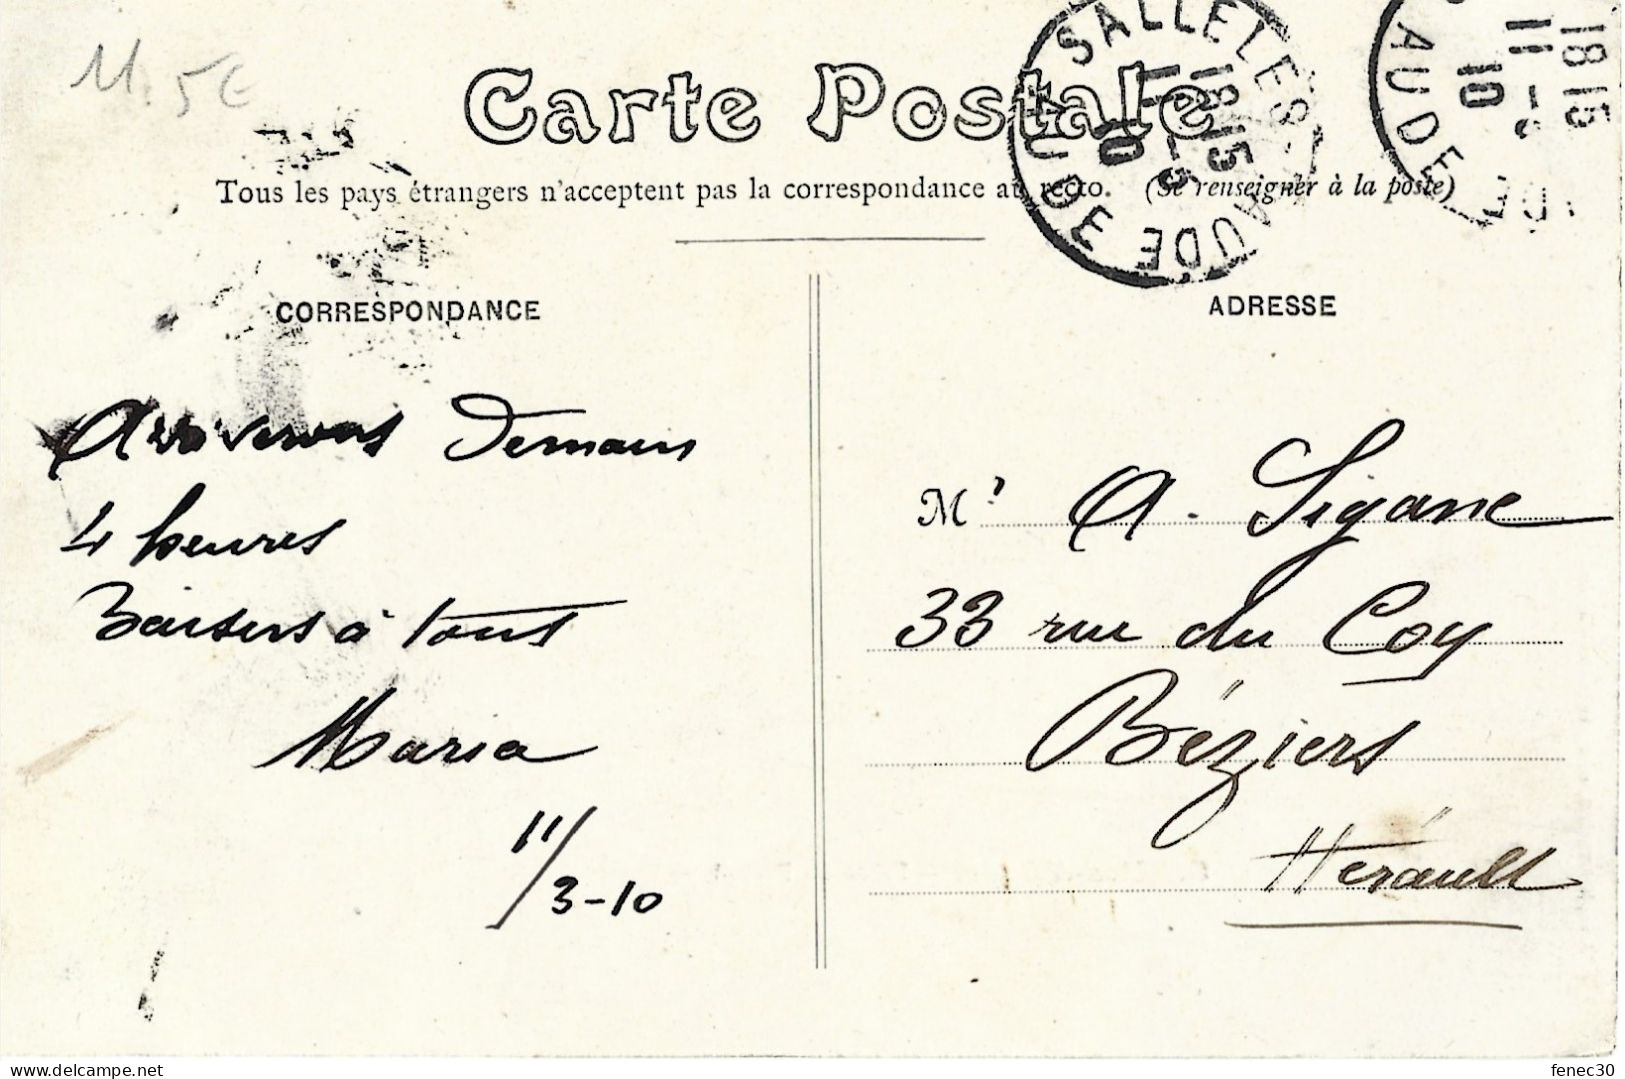 M. 5€
Carte Postale
Tous les pays étrangers n'acceptent pas la correspondance au recto. (Se renseigner à la poste)
SALLELES-
AUDE
AUDE
18 15
11 - 3
10
AUDE
18 15
11 -
10
CORRESPONDANCE
ADRESSE
Arriverons Demain
4 heures
Baisers à tous
Maria
11/3-10
Mr A. Sigane
33 rue du Coq
Béziers
Hérault
www.delcampe.net
fenec30